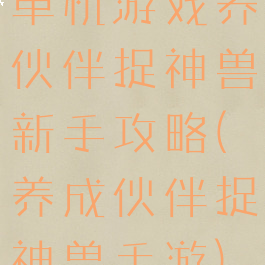 单机游戏养
伙伴捉神兽
新手攻略(
养成伙伴捉
神兽手游)